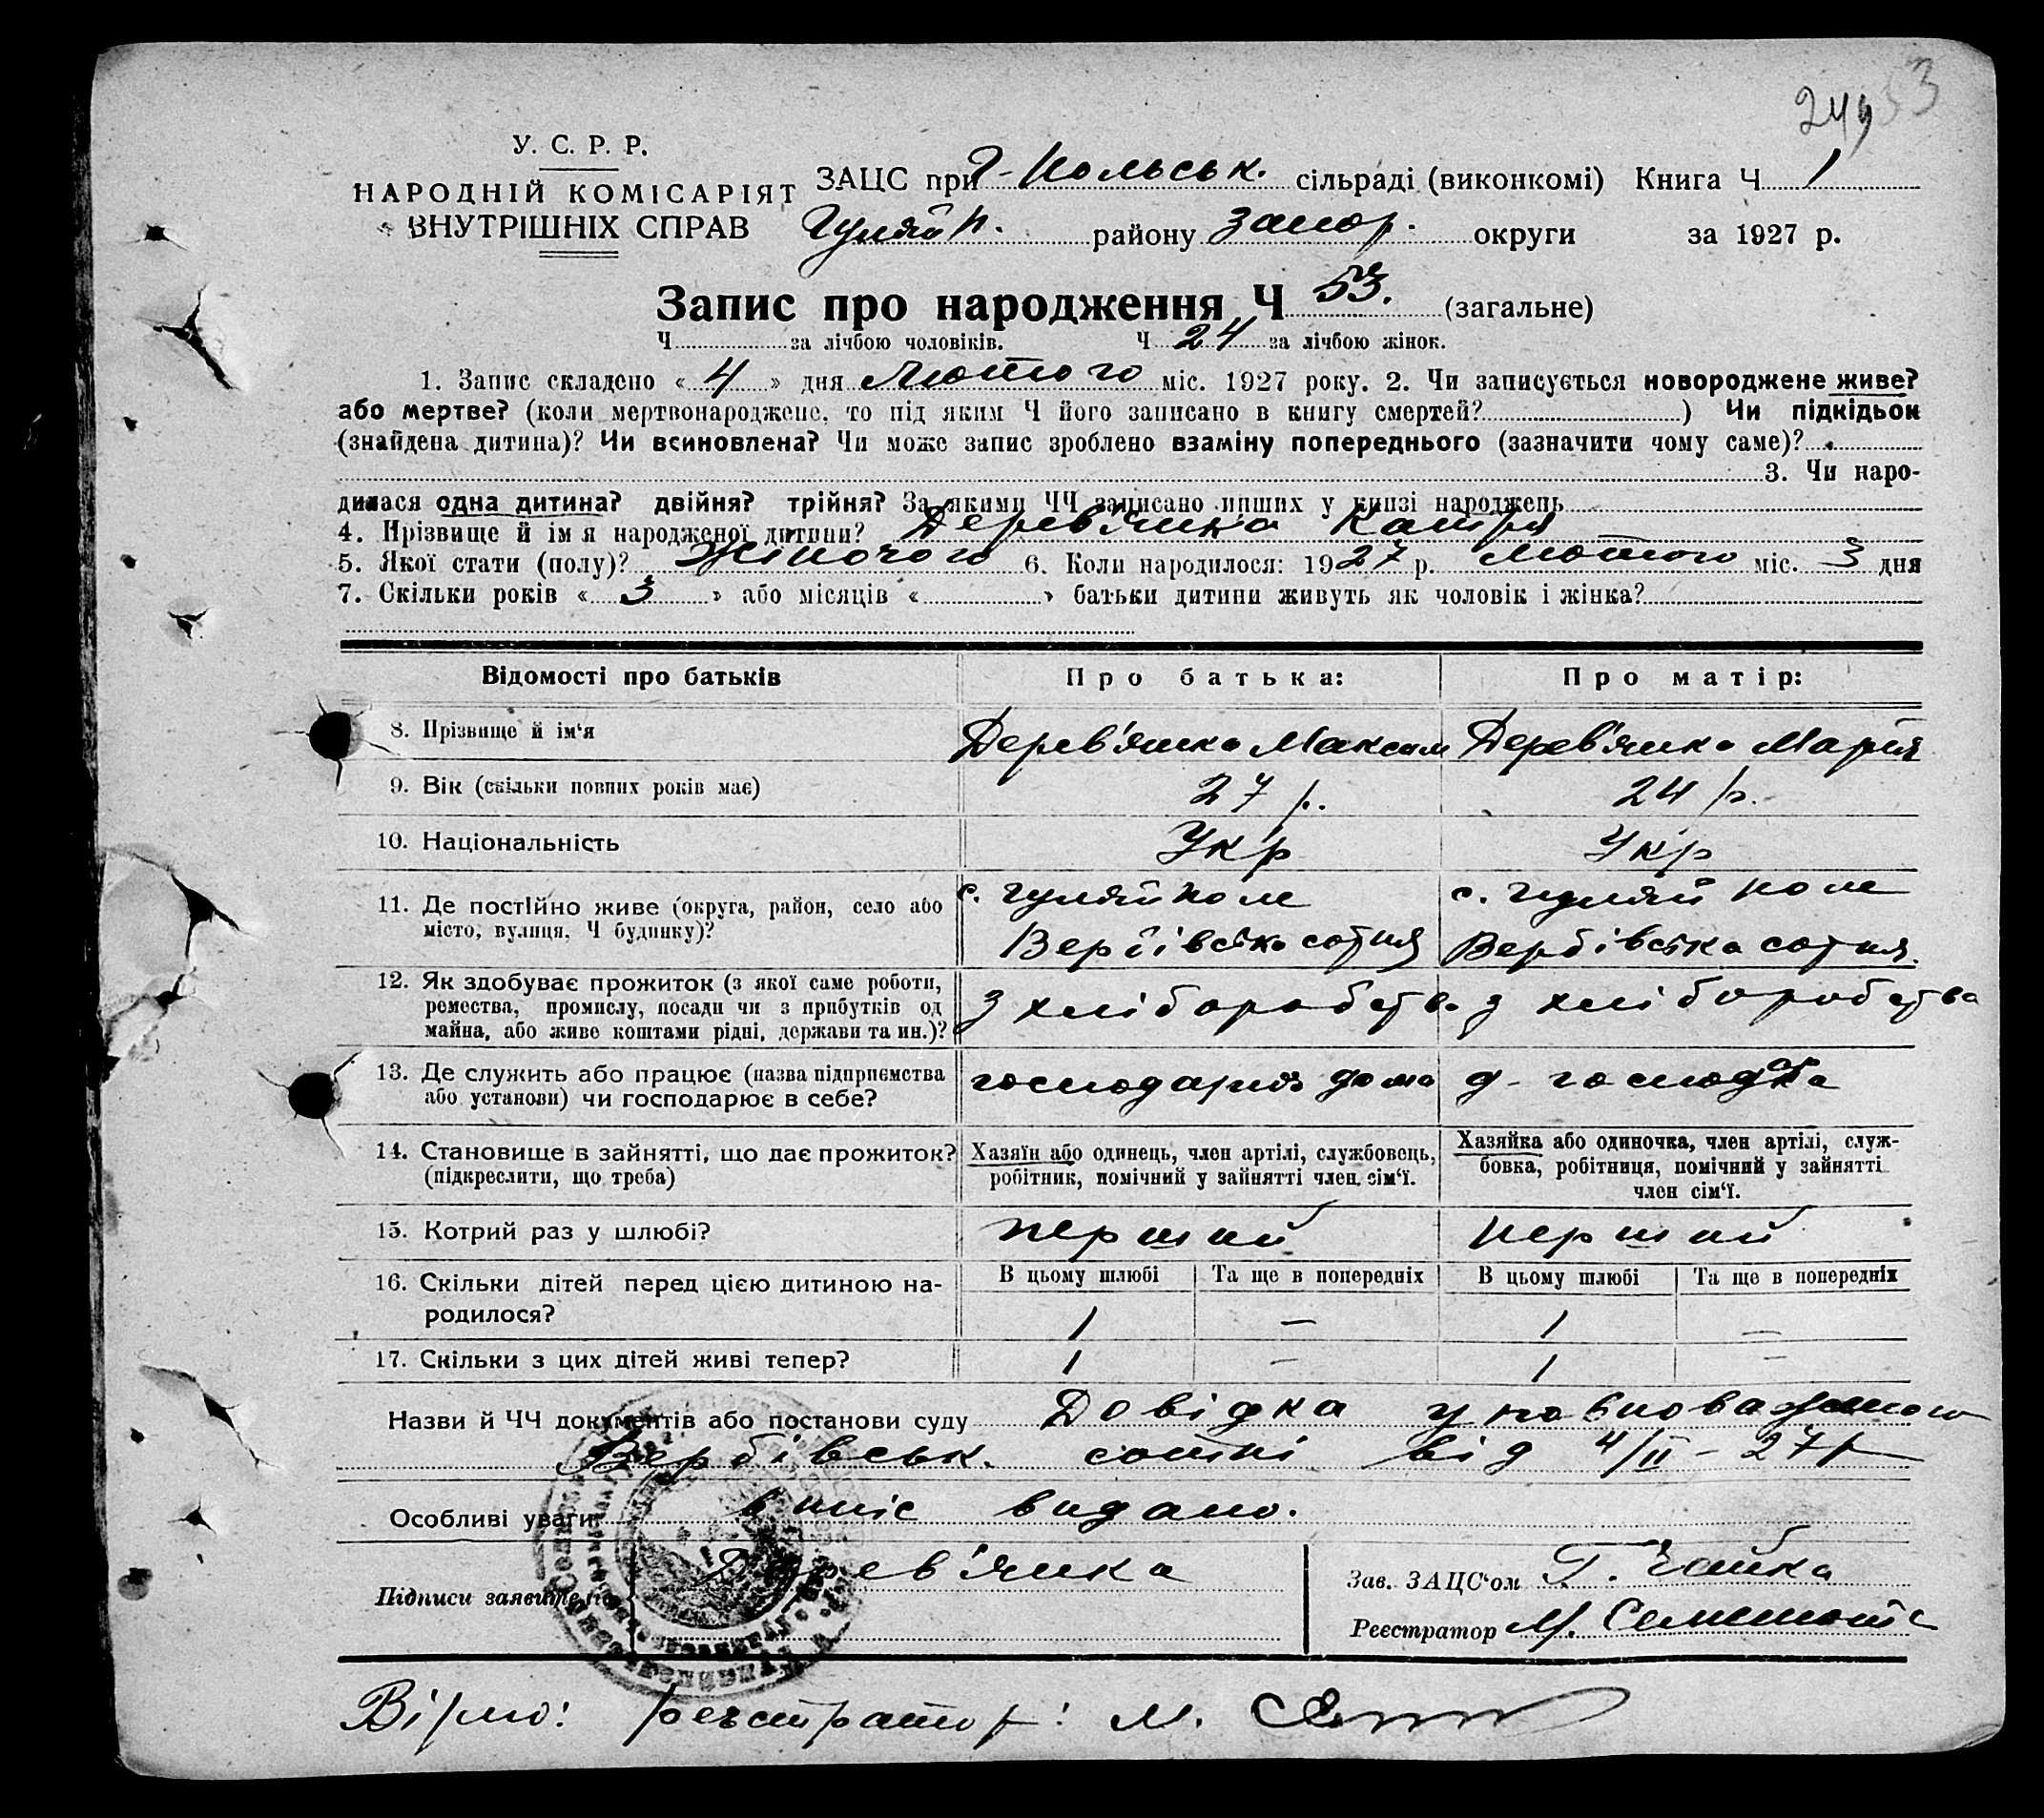 249 53
У. С. Р. Р.
НАРОДНІЙ КОМІСАРІЯТ
ВНУТРІШНІХ СПРАВ
ЗАЦС при Г-Польськ. сільраді (виконкомі) Книга Ч 1
Гуляй п. району Запор. округи за 1927 р.
Запис про народження Ч 53. (загальне)
Ч за лічбою чоловіків. Ч 24 за лічбою жінок.
1. Запис складено «4» дня Лютого міс. 1927 року. 2. Чи записується новороджене живе?
або мертве? (коли мертвонароджене, то під яким Ч його записано в книгу смертей? ) Чи підкідьок
(знайдена дитина)? Чи всиновлена? Чи може запис зроблено взаміну попереднього (зазначити чому саме)?
3. Чи наро-
дилася одна дитина? двійня? трійня? За якими ЧЧ записано инших у книзі народжень
4. Прізвище й ім я народженої дитини? Дерев'янка Катря
5. Якої стати (полу)? Жіночого 6. Коли народилося: 1927 р. Лютого міс. 3 дня
7. Скільки років «3» або місяців « » батьки дитини живуть як чоловік і жінка?
Відомості про батьків Про батька: Про матір:
8. Прізвище й ім'я Дерев'янко Максим Дерев'янко Марія
9. Вік (скільки повних років має) 27 р. 24 р.
10. Національність Укр Укр
11. Де постійно живе (округа, район, село або місто, вулиця, Ч будинку)? с. Гуляйполе с. Гуляй поле
Вербівська сотня Вербівська сотня.
12. Як здобуває прожиток (з якої саме роботи, ремества, промислу, посади чи з прибутків од майна, або живе коштами рідні, держави та ин.)? З хліборобства з хліборобства
13. Де служить або працює (назва підприємства або установи) чи господарює в себе? господарює дома д-господарка
14. Становище в зайнятті, що дає прожиток? (підкреслити, що треба) Хазяїн або одинець, член артілі, службовець, робітник, помічний у зайнятті член сім'ї. Хазяйка або одиночка, член артілі, служ-
бовка, робітниця, помічний у зайнятті член сім'ї.
15. Котрий раз у шлюбі? перший перший
16. Скільки дітей перед цією дитиною на-
родилося? В цьому шлюбі Та ще в попередніх В цьому шлюбі Та ще в попередніх
1 — 1 —
17. Скільки з цих дітей живі тепер? 1 — 1 —
Назви й ЧЧ документів або постанови суду Довідка уповноваженого
Вербівськ. сотні від 4/II - 27 р
Особливі уваги: випис видано.
Підписи заявителів Дерев'янка
Зав. ЗАЦС'ом Г. Чайка
Реєстратор М.
Вірно: реєстратор: М.